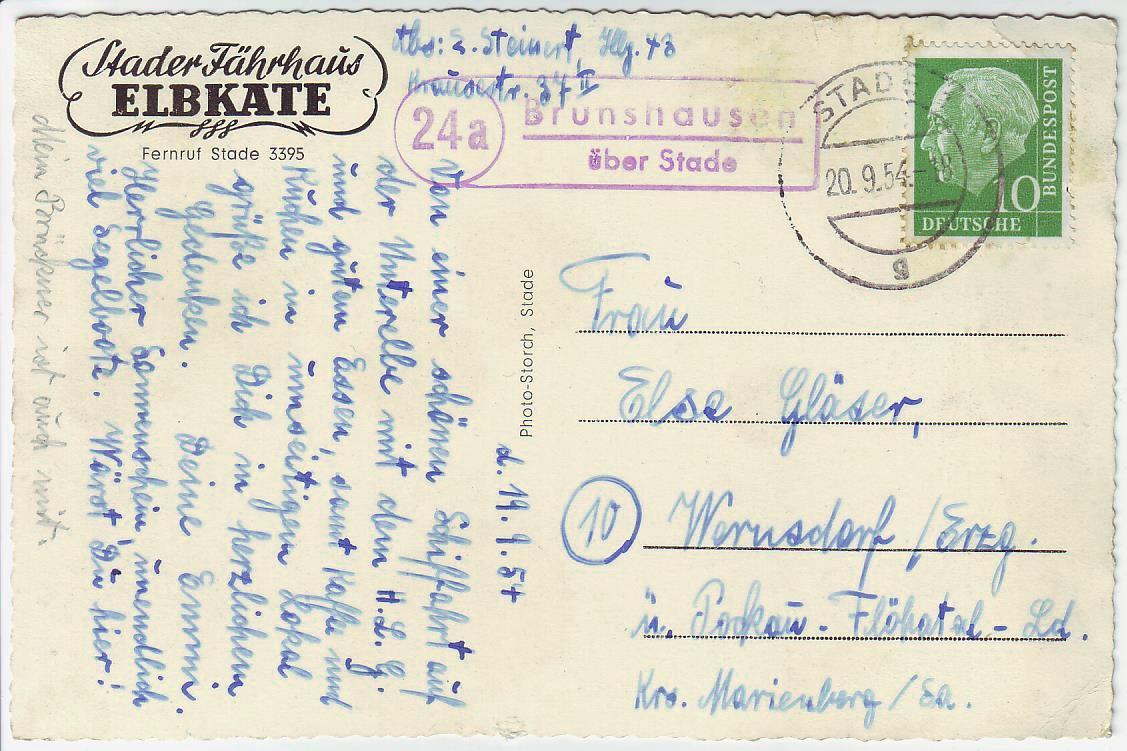 Stader Fährhaus
ELBKATE
Fernruf Stade 3395
Abs: E. Steinert, Hbg. 43
Krausestr. 37 II
24a
Brunshausen
über Stade
STADE
20.9.54.-18
g
10
DEUTSCHE
BUNDESPOST
d. 19.9.54
Von einer schönen Schiffahrt auf
der Unterelbe mit dem H.L.G.
und gutem Essen, samt Kaffe und
Kuchen in umseitigem Lokal
grüße ich Dich in herzlichem
Gedenken. Deine Emmi.
Herrlicher Sonnenschein, unendlich
viel Segelboote. Wärst Du hier!
Mein Brückner ist auch mit.
Photo-Storch, Stade
Frau
Else Gläser,
10 Wernsdorf/Erzg.
ü. Pockau-Flöhatal-Ld.
Krs. Marienberg/Sa.